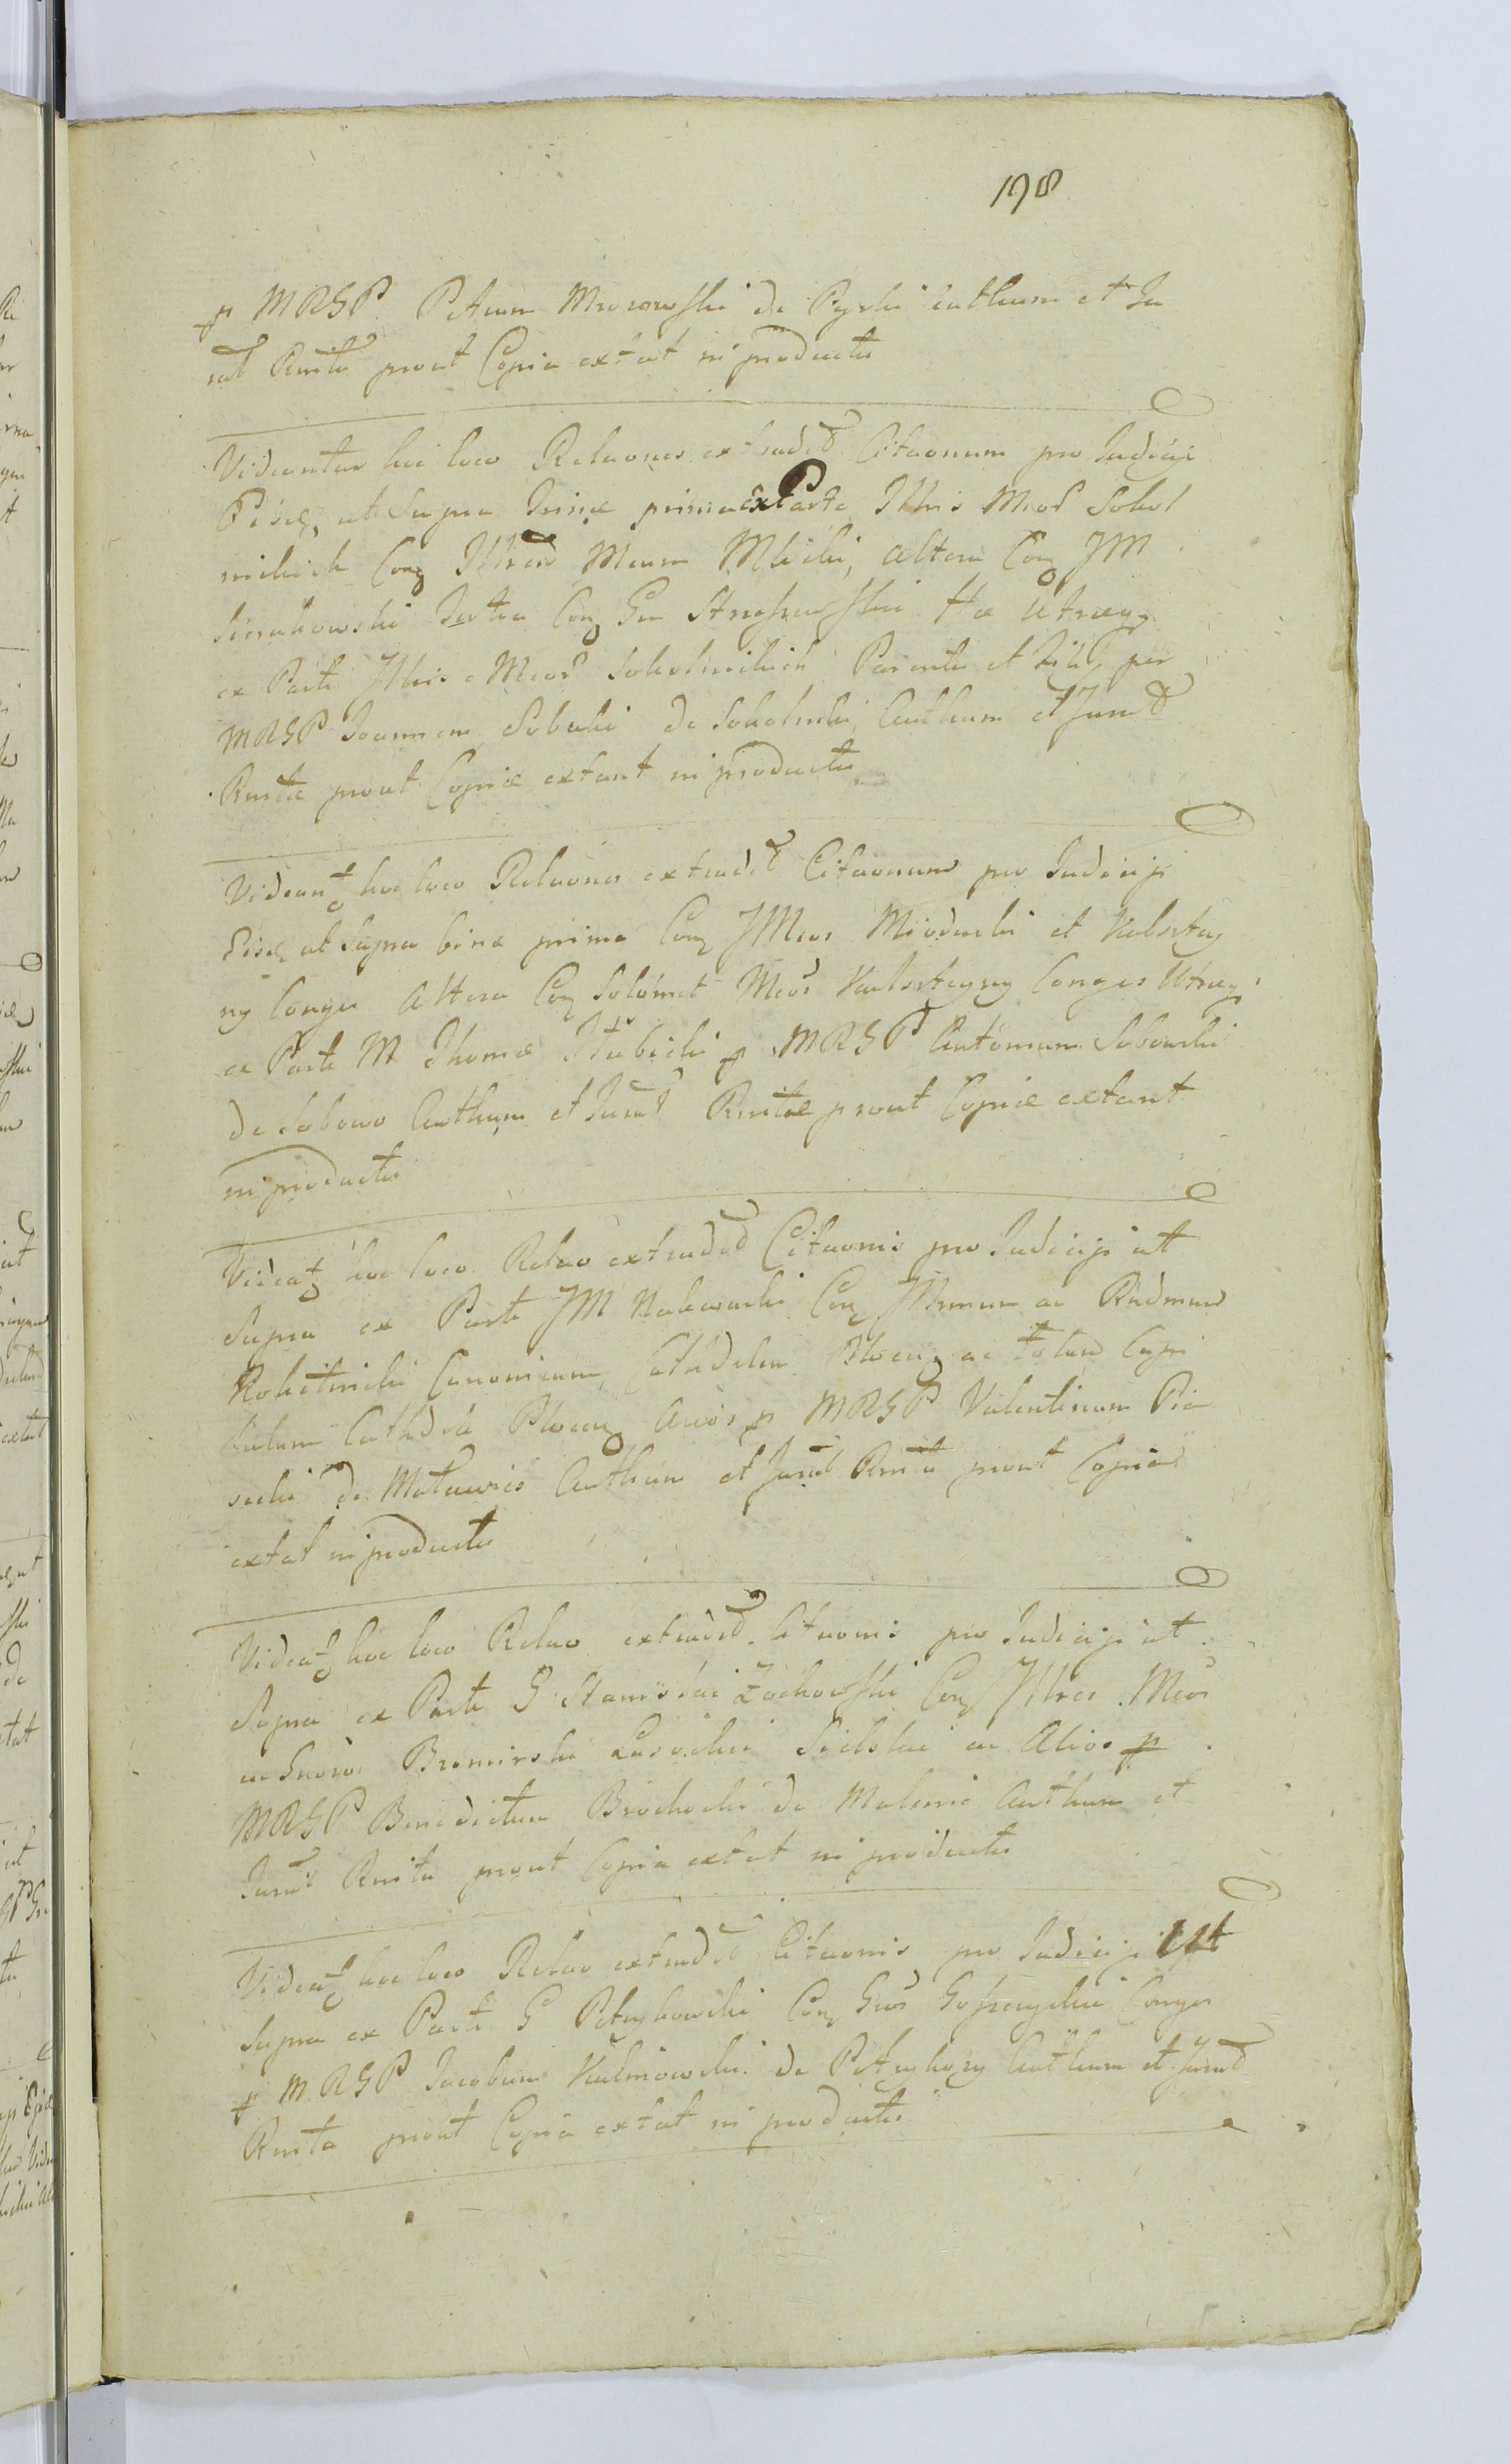 198
p MRGP Petrum Mrozowski de Pyrki Authum et Ju
rat Rnita prout Copia extat in productu
Videantur hoc loco Relaones extraded Citaonum pro Judicijs
Pisez ut Supra Trinæ prima ex Parte Illris Meor Sokol
nickich Conq Illrem Meum Mlicki, altera Conq JM
Sierakowski Tertia Conq Gen Straszewski Hæ Utræq
ex Parte Illris Meor Sokolnickich Parentis et Filij per
MRGP Joannem Sobecki de Sokolniki Authum et Jurat
Rnitæ prout Copiæ extant in productu
Videant hoc loco Relaones extraded Citaonum pro Judicijs
Pisez ut Supra binæ prima Conq JMeos Mioduski et Kalxtey
ny Conges Altera Conq Solomet Meos Kalxteyny Conges Utræq
ex Parte M Thomæ Stubicki p MRGP Antonium Sobowski
de Sobowo Authum et Jurat Rnitæ prout Copiæ extant
in productu
Videat hoc loco Relao extraded Citaonis pro Judicijs ut
Supra ex Parte JM Nakwaski Conq Illrmum ac Rndmum
Rokitnicki Canonicum Cathdalem Plocen ac totum Capi
tulum Cathdale Plocen Alios p MRGP Valentinum Pia
secki de Authum et Jurat Rnita prout Copia
extat in productu
Videat hoc loco Relao extraded Citaonis pro Judicijs ut
Supra ex Parte G Stanislai Zochowski Conq Illres Meos
ac Gnoros Bromirski Lasocki Sielski ac Alios p
MRGP Benedictum Brochocki de Authum et
Jurat Rnita prout Copia extat in productu
Videat hoc loco Relao extraded Citaonis pro Judicijs Ut
Supra ex Parte G Petrykowski Conq Gnos Conges
p MRGP Jacobum Kalinowski de Petrykozy Authum et Jurat
Rnita prout Copia extat in productu